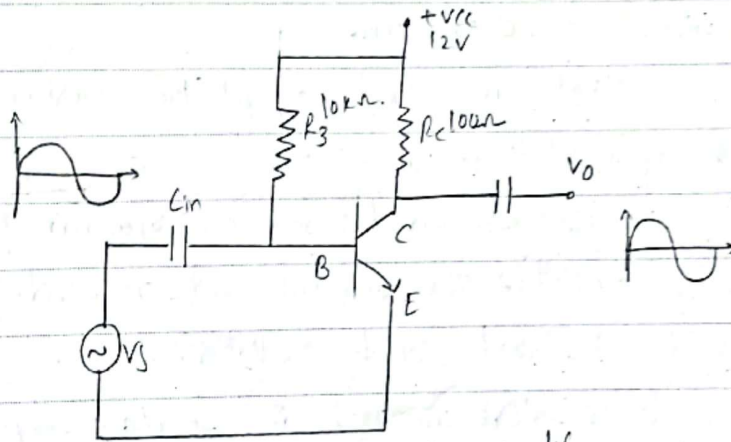 +VCC
12V
R3 10KΩ.
RC 10KΩ
V0
Cin
C
B
E
~ VS